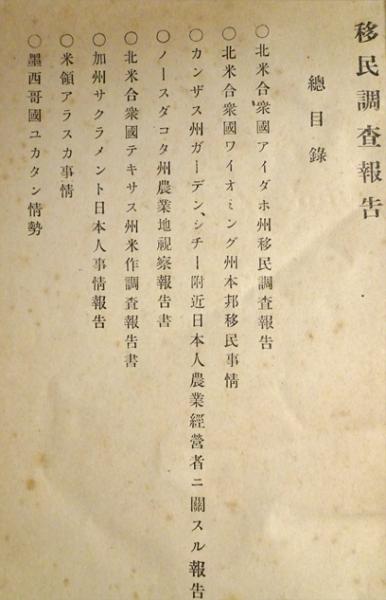 移民調査報告
總目錄
○北米合衆國アイダホ州移民調査報告
○北米合衆國ワイオミング州本邦移民事情
○カンザス州ガーデン、シチー附近日本人農業經營者ニ關スル報告
○ノースダコタ州農業地視察報告書
○北米合衆國テキサス州米作調査報告書
○加州サクラメント日本人事情報告
○米領アラスカ事情
○墨西哥國ユカタン情勢